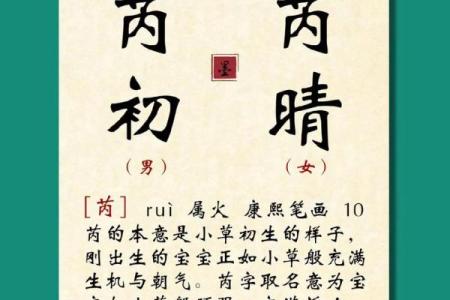 芮初
（男）
墨
芮晴
（女）
[芮] ruì 属火 康熙笔画 10
芮的本意是小草初生的样子，
刚出生的宝宝正如小草般充满
生机与朝气。芮字取名意为宝